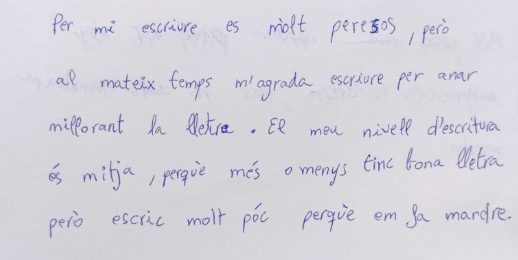 Per mi escriure es mòlt peresos, però
al mateix temps m'agrada escriure per anar
millorant la lletra. El meu nivell d'escritura
és mitja, perquè més o menys tinc bona lletra
però escric molt póc perquè em fa mandre.